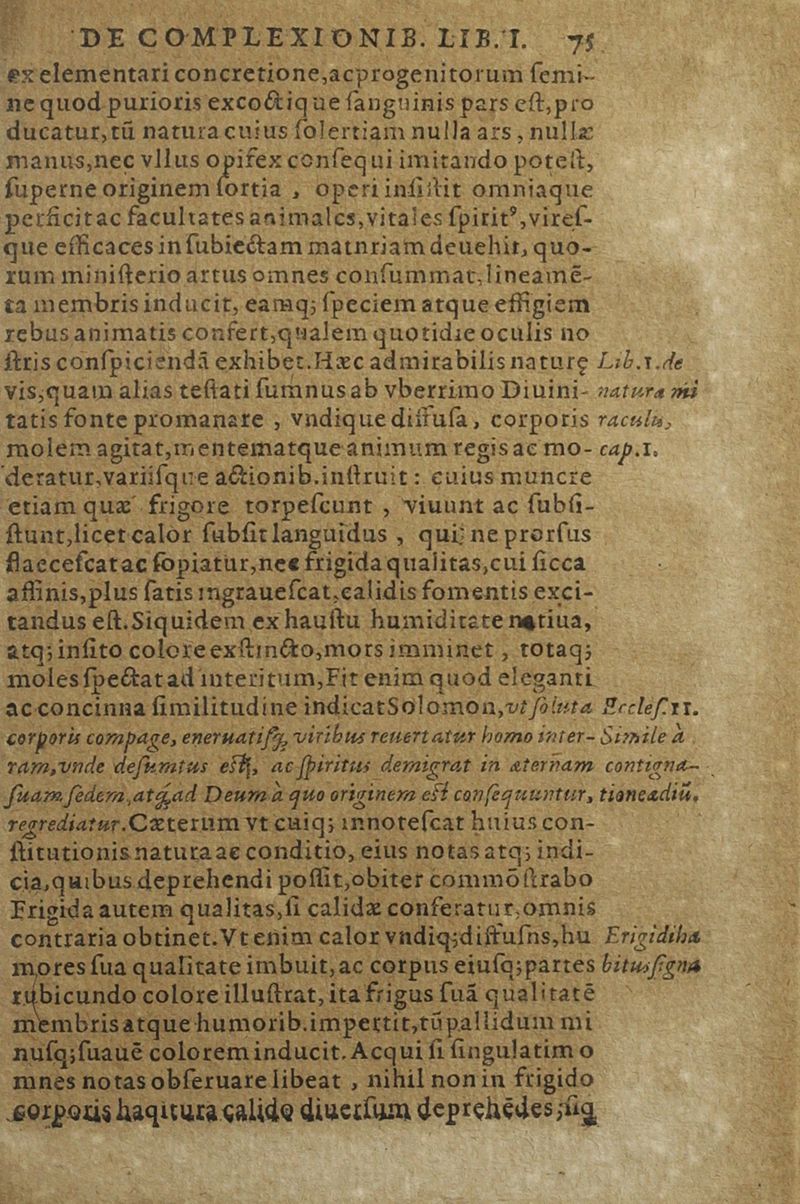 DE COMPLEXIONIB. LIB. I. 75
ex elementari concretione,ac progenitorum ſemi-
ne quod purioris excoctique ſanguinis pars eſt,pro
ducatur,tū natura cuius ſolertiam nulla ars, nullæ
manus,nec vllus opifex conſequi imitando poteſt,
ſuperne originem ſortia , operi inſiſtit omniaque
perficit ac facultates animales,vitales ſpirit⁹,vireſ-
que efficaces in ſubiectam matnriam deuehit, quo-
rum miniſterio artus omnes conſummat,lineamē-
ta membris inducit, eamq; ſpeciem atque effigiem
rebus animatis confert,qualem quotidie oculis no
ſtris conſpiciendā exhibet.Hæc admirabilis naturę Lib.1.de
vis,quam alias teſtati ſumnus ab vberrimo Diuini- natura mi
tatis fonte promanare , vndique diffuſa, corporis raculu,
molem agitat,mentematque animum regis ac mo- cap.1.
deratur,variiſque actionib.inſtruit: cuius muncre
etiam quæ frigore torpeſcunt , viuunt ac ſubſi-
ſtunt,licet calor ſubſit languidus , qui; ne prorſus
flaccefcat ac ſopiatur,nec frigida qualitas,cui ſicca
affinis,plus ſatis ingraueſcat,calidis fomentis exci-
tandus eſt.Siquidem exhauſtu humiditate natiua,
atq; inſito colore exſtincto,mors imminet, totaq;
moles ſpectat ad interitum,Fit enim quod eleganti
ac concinna ſimilitudine indicat Solomon,vt ſoluta Eccleſ.11.
corporis compage, eneruatiſq, viribus reuertatur homo inter- Simile à
ram,vnde deſumtus eſt, ac ſpiritus demigrat in æternam contigna-
ſuam ſedem,atq,ad Deum à quo originem eſt conſequuntur, tione ædiū.
regrediatur.Cæterum vt cuiq; innoteſcat huius con-
ſtitutionis natura ac conditio, eius notas atq; indi-
cia,quibus deprehendi poſſit,obiter commōſtrabo
Frigida autem qualitas,ſi calidæ conferatur,omnis
contraria obtinet.Vt enim calor vndiq;diffuſns,hu Frigidi ha
mores ſua qualitate imbuit,ac corpus eiuſq;partes bitus ſigna
rubicundo colore illuſtrat, ita frigus ſuā qualitatē
membris atque humorib.impertit,tū pallidum mi
nuſq;ſuauē colorem inducit. Acqui ſi ſingulatim o
mnes notas obſeruare libeat , nihil non in frigido
corporis haqitura calido diuerſum deprehēdes;ſiq